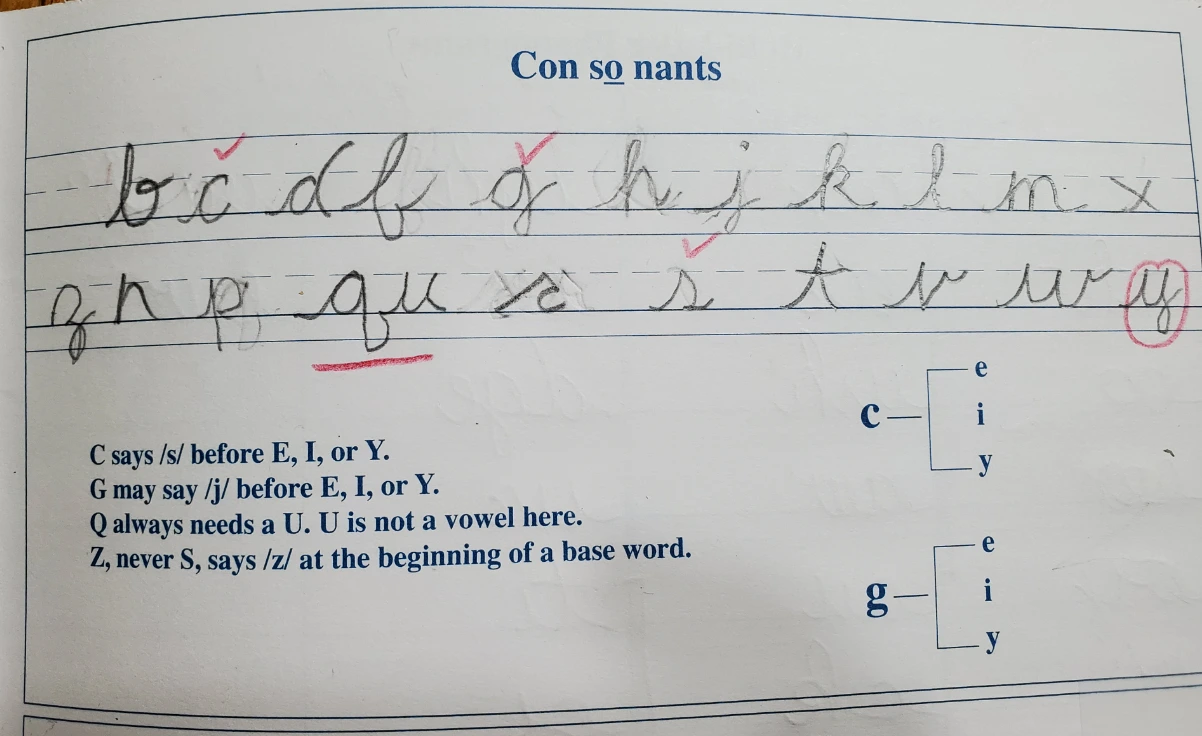 Con so nants
b c d f g h j k l m x
z n p qu r s t v w y
C says /s/ before E, I, or Y.
G may say /j/ before E, I, or Y.
Q always needs a U. U is not a vowel here.
Z, never S, says /z/ at the beginning of a base word.
c
e
i
y
g
e
i
y